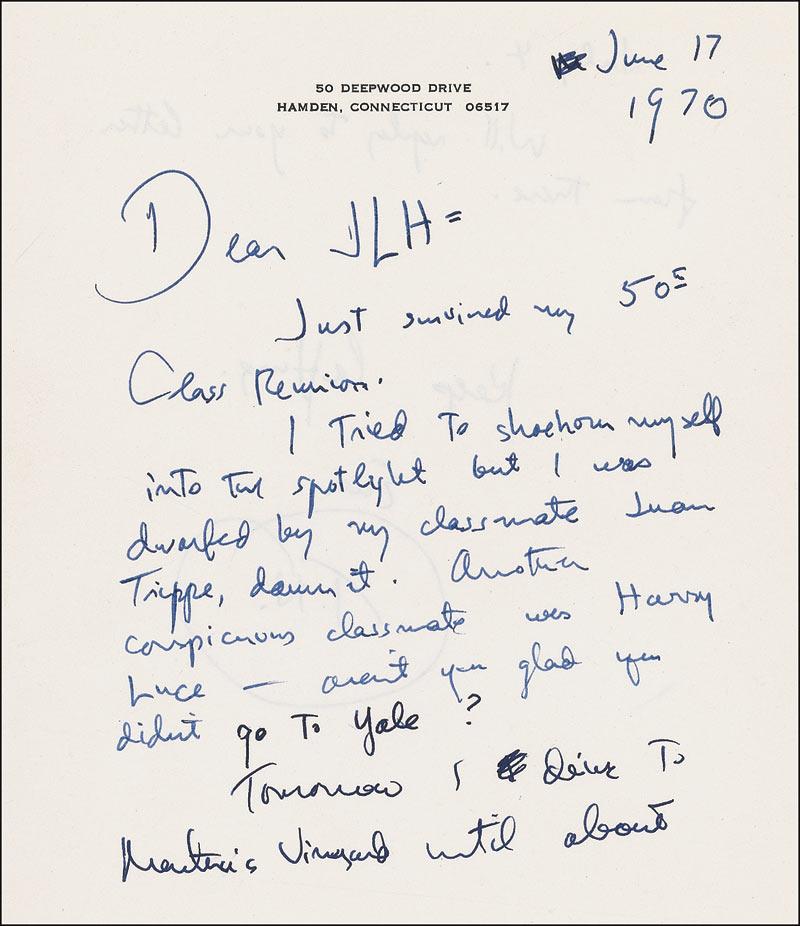 June 17
1970
50 DEEPWOOD DRIVE
HAMDEN, CONNECTICUT 06517
Dear JLH =
Just survived my 50th
Class Reunion.
I Tried To shoehorn myself
into the spotlight but I was
dwarfed by my classmate Juan
Trippe, damn it. Another
conspicuous classmate was Harry
Luce — aren't you glad you
didn't go To Yale ?
Tomorrow I drive To
Martha's Vineyard until about